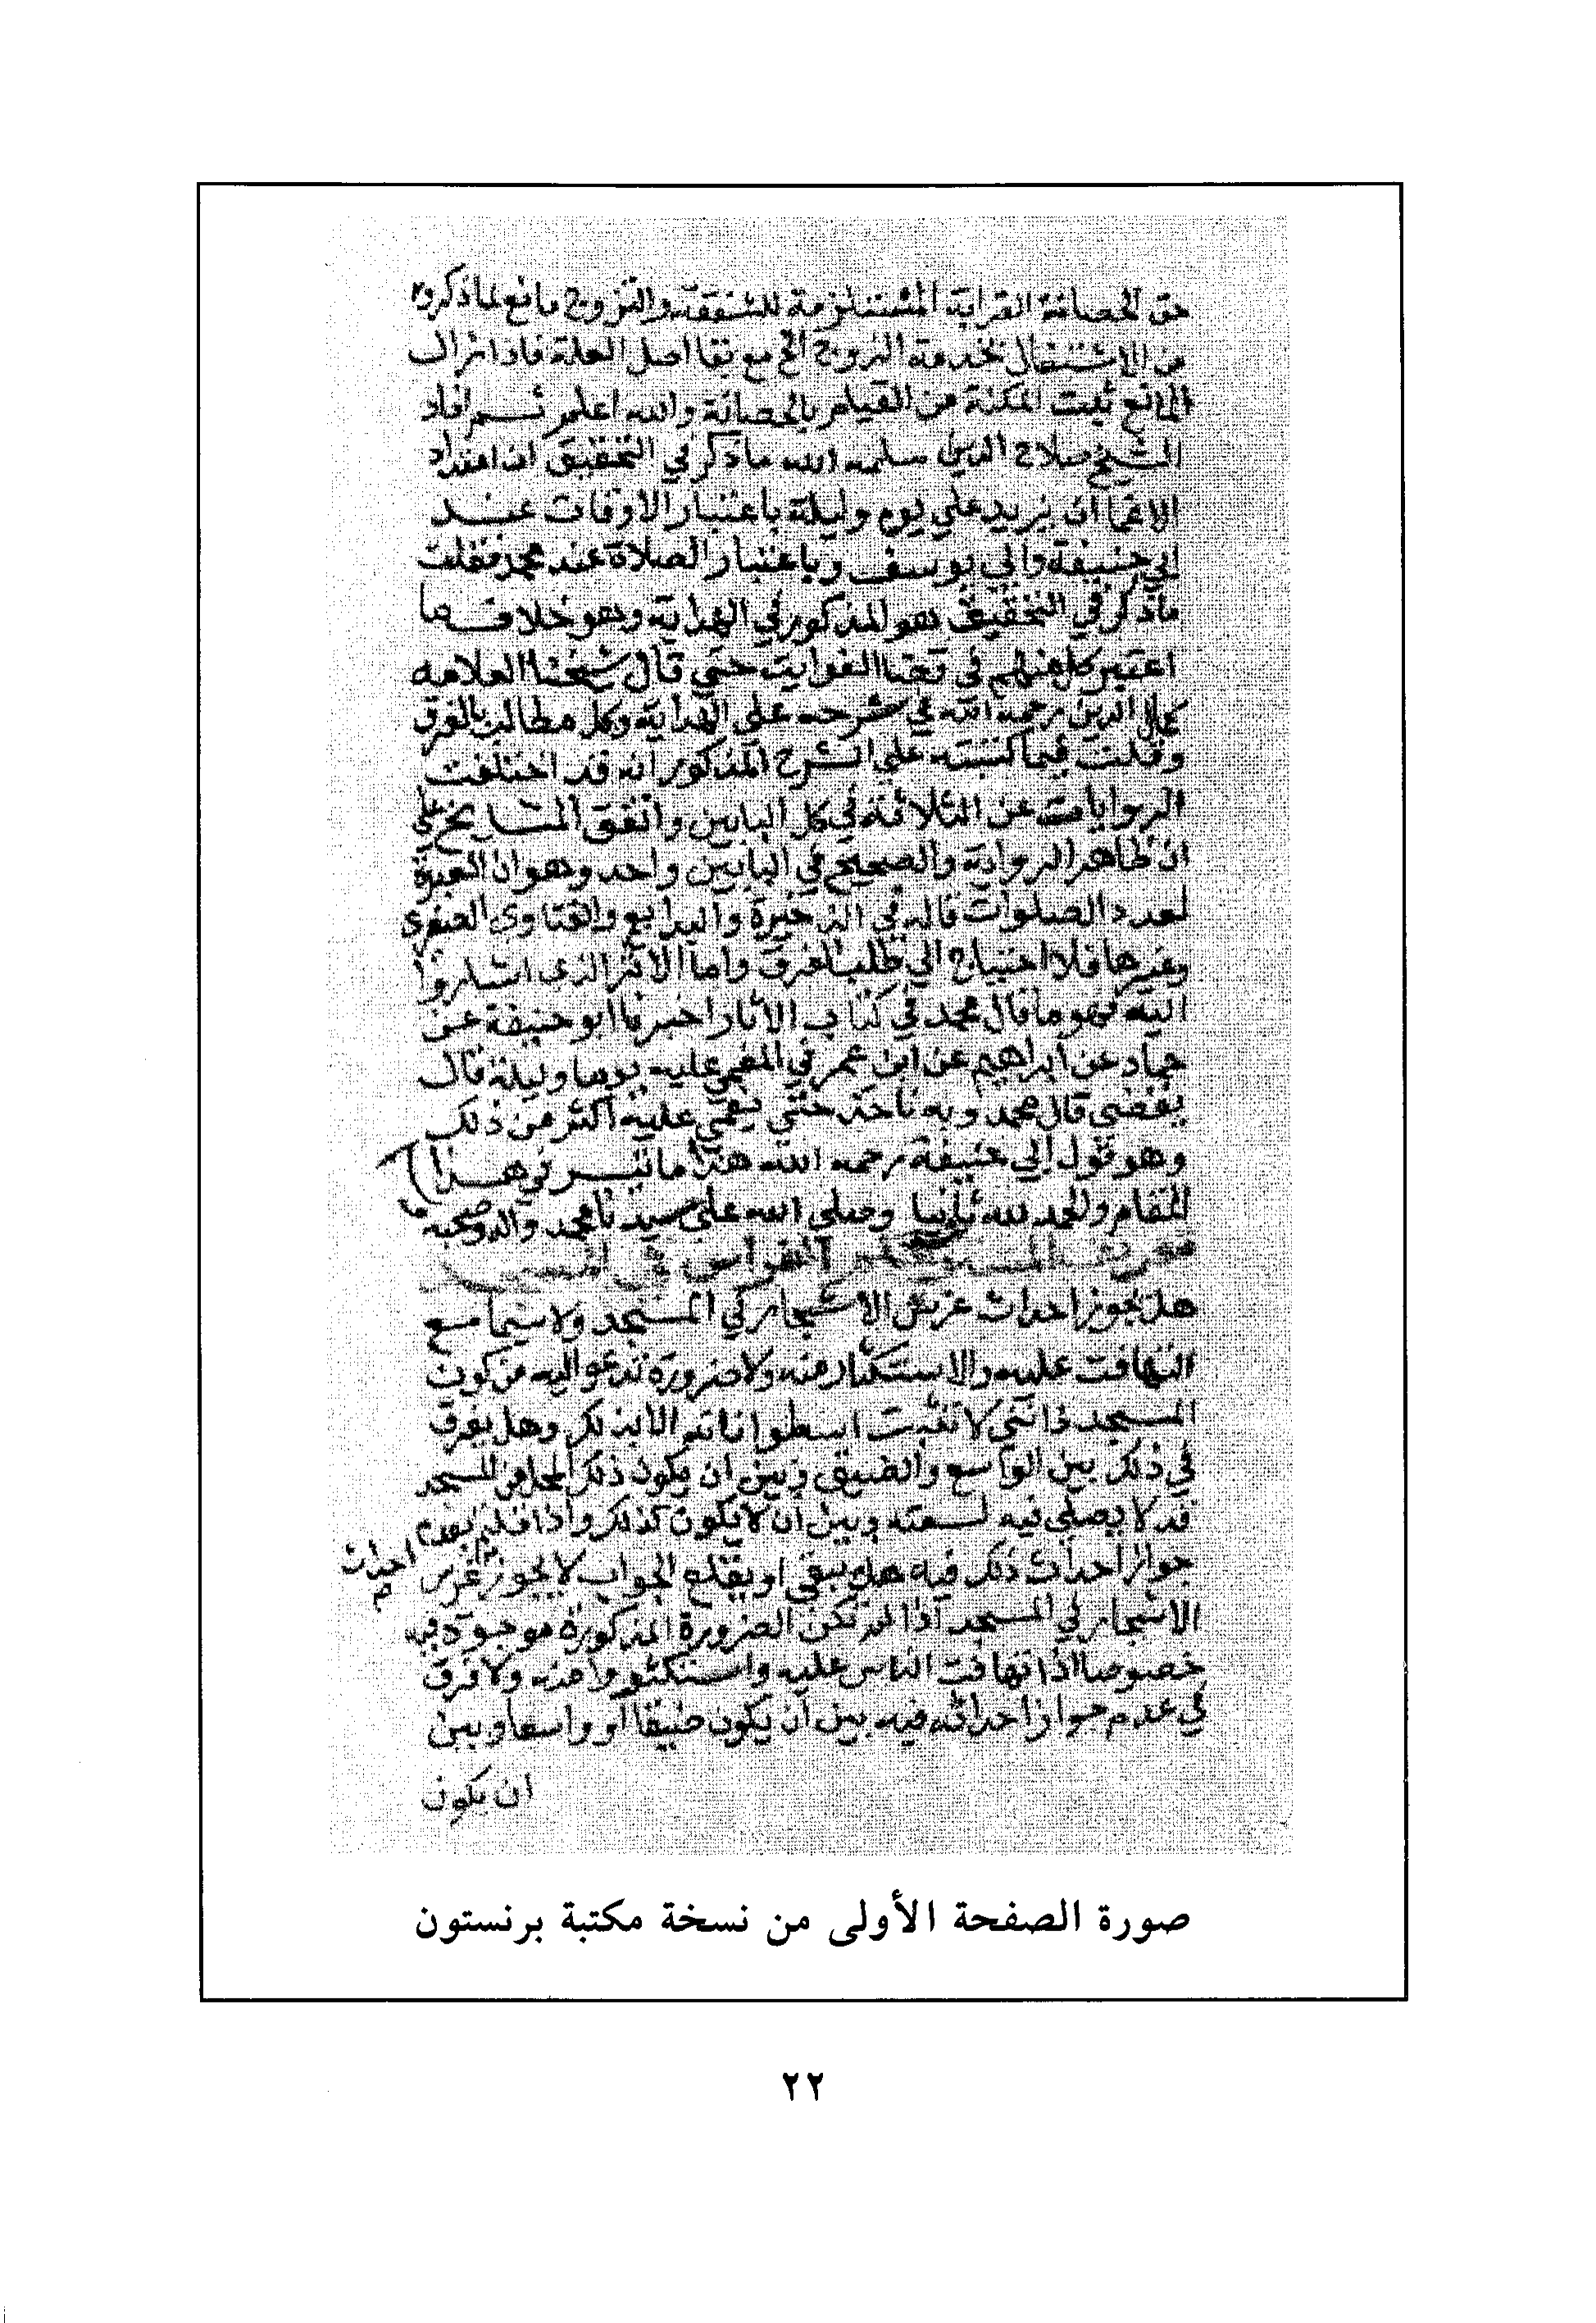 حق الحضانة القرابة المستلزمة للشفقة والتزوج مانع لما ذكروا
من الاشتغال بخدمة الزوج الخ مع بقا اصل العلة فاذا زال
المانع ثبت المكنة من القيام بالحضانة والله اعلم ثم افاد
الشيخ صلاح الدين سلمه الله ما ذكر في التحقيق ان امتداد
الاغما ان يزيد علي يوم وليلة باعتبار الاوقات عند
ابي حنيفة وابي يوسف وباعتبار الصلاة عند محمد فقلت
ماذكر في التحقيق هو المذكور في الهداية وهو خلاف ما
اعتبر كل منهم في قضا الفوايت حتي قال شيخنا العلامه
كمال الدين رحمه الله في شرحه علي الهداية وكل مطالب بالفرق
وقلت فيما كتبته علي الشرح المذكور انه قد اختلفت
الروايات عن الثلاثة في كل البابين واتفق المشايخ علي
ان ظاهر الرواية والصحيح في البابين واحد وهو ان العبرة
لعدد الصلوات قاله في الذخيرة والبدايع والفتاوي الصغرى
وغيرها فلا احتياج الي طلب الفرق واما الاثر الذي اشاروا
اليه فهو ما قال محمد في كتاب الاثار اخبرنا ابو حنيفة عن
حماد عن ابراهيم عن ابن عمر في المغمي عليه يوما وليلة قال
يقضي قال محمد وبه ناخذ حتي يغمي عليه اكثر من ذلك
وهو قول ابي حنيفة رحمه الله هذا ما تيسر في هذا
المقام والحمد لله ثانيا وصلي الله علي سيدنا محمد واله وصحبه
الغراس في المسجد
هل يجوز احداث غرس الاشجار في المسجد ولا سيما مع
التهافت عليه والاستكثار منه ولا ضرورة تدعوا اليه من كون
المسجد ذا نزي لا تثبت اسطواناته الا بذلك وهل يفرق
في ذلك بين الواسع والضيق وبين ان يكون ذلك المحل من المسجد
قد لا يصلي فيه لسعته وبين ان لا يكون كذلك واذا قلتم بعدم
جواز احداث ذلك فيه هل يبقي او يقلع الجواب لا يجوز غرس
احداث
الاشجار في المسجد اذا لم تكن الضرورة المذكورة موجودة فيه
خصوصا اذا تهافت الناس عليه واستكثروا منه ولا فرق
في عدم جواز احداثه فيه بين ان يكون ضيقا او واسعا وبين
ان يكون
صورة الصفحة الأولى من نسخة مكتبة برنستون
٢٢